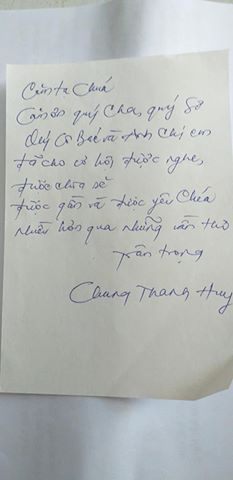 Cảm tạ Chúa
Cảm ơn quý Cha, quý Sơ
Quý Cô Bác và Anh Chị em
đã cho cơ hội được nghe,
được chia sẻ
được gần và được yêu Chúa
nhiều hơn qua những vần thơ
Trân trọng
Chung Thanh Huy